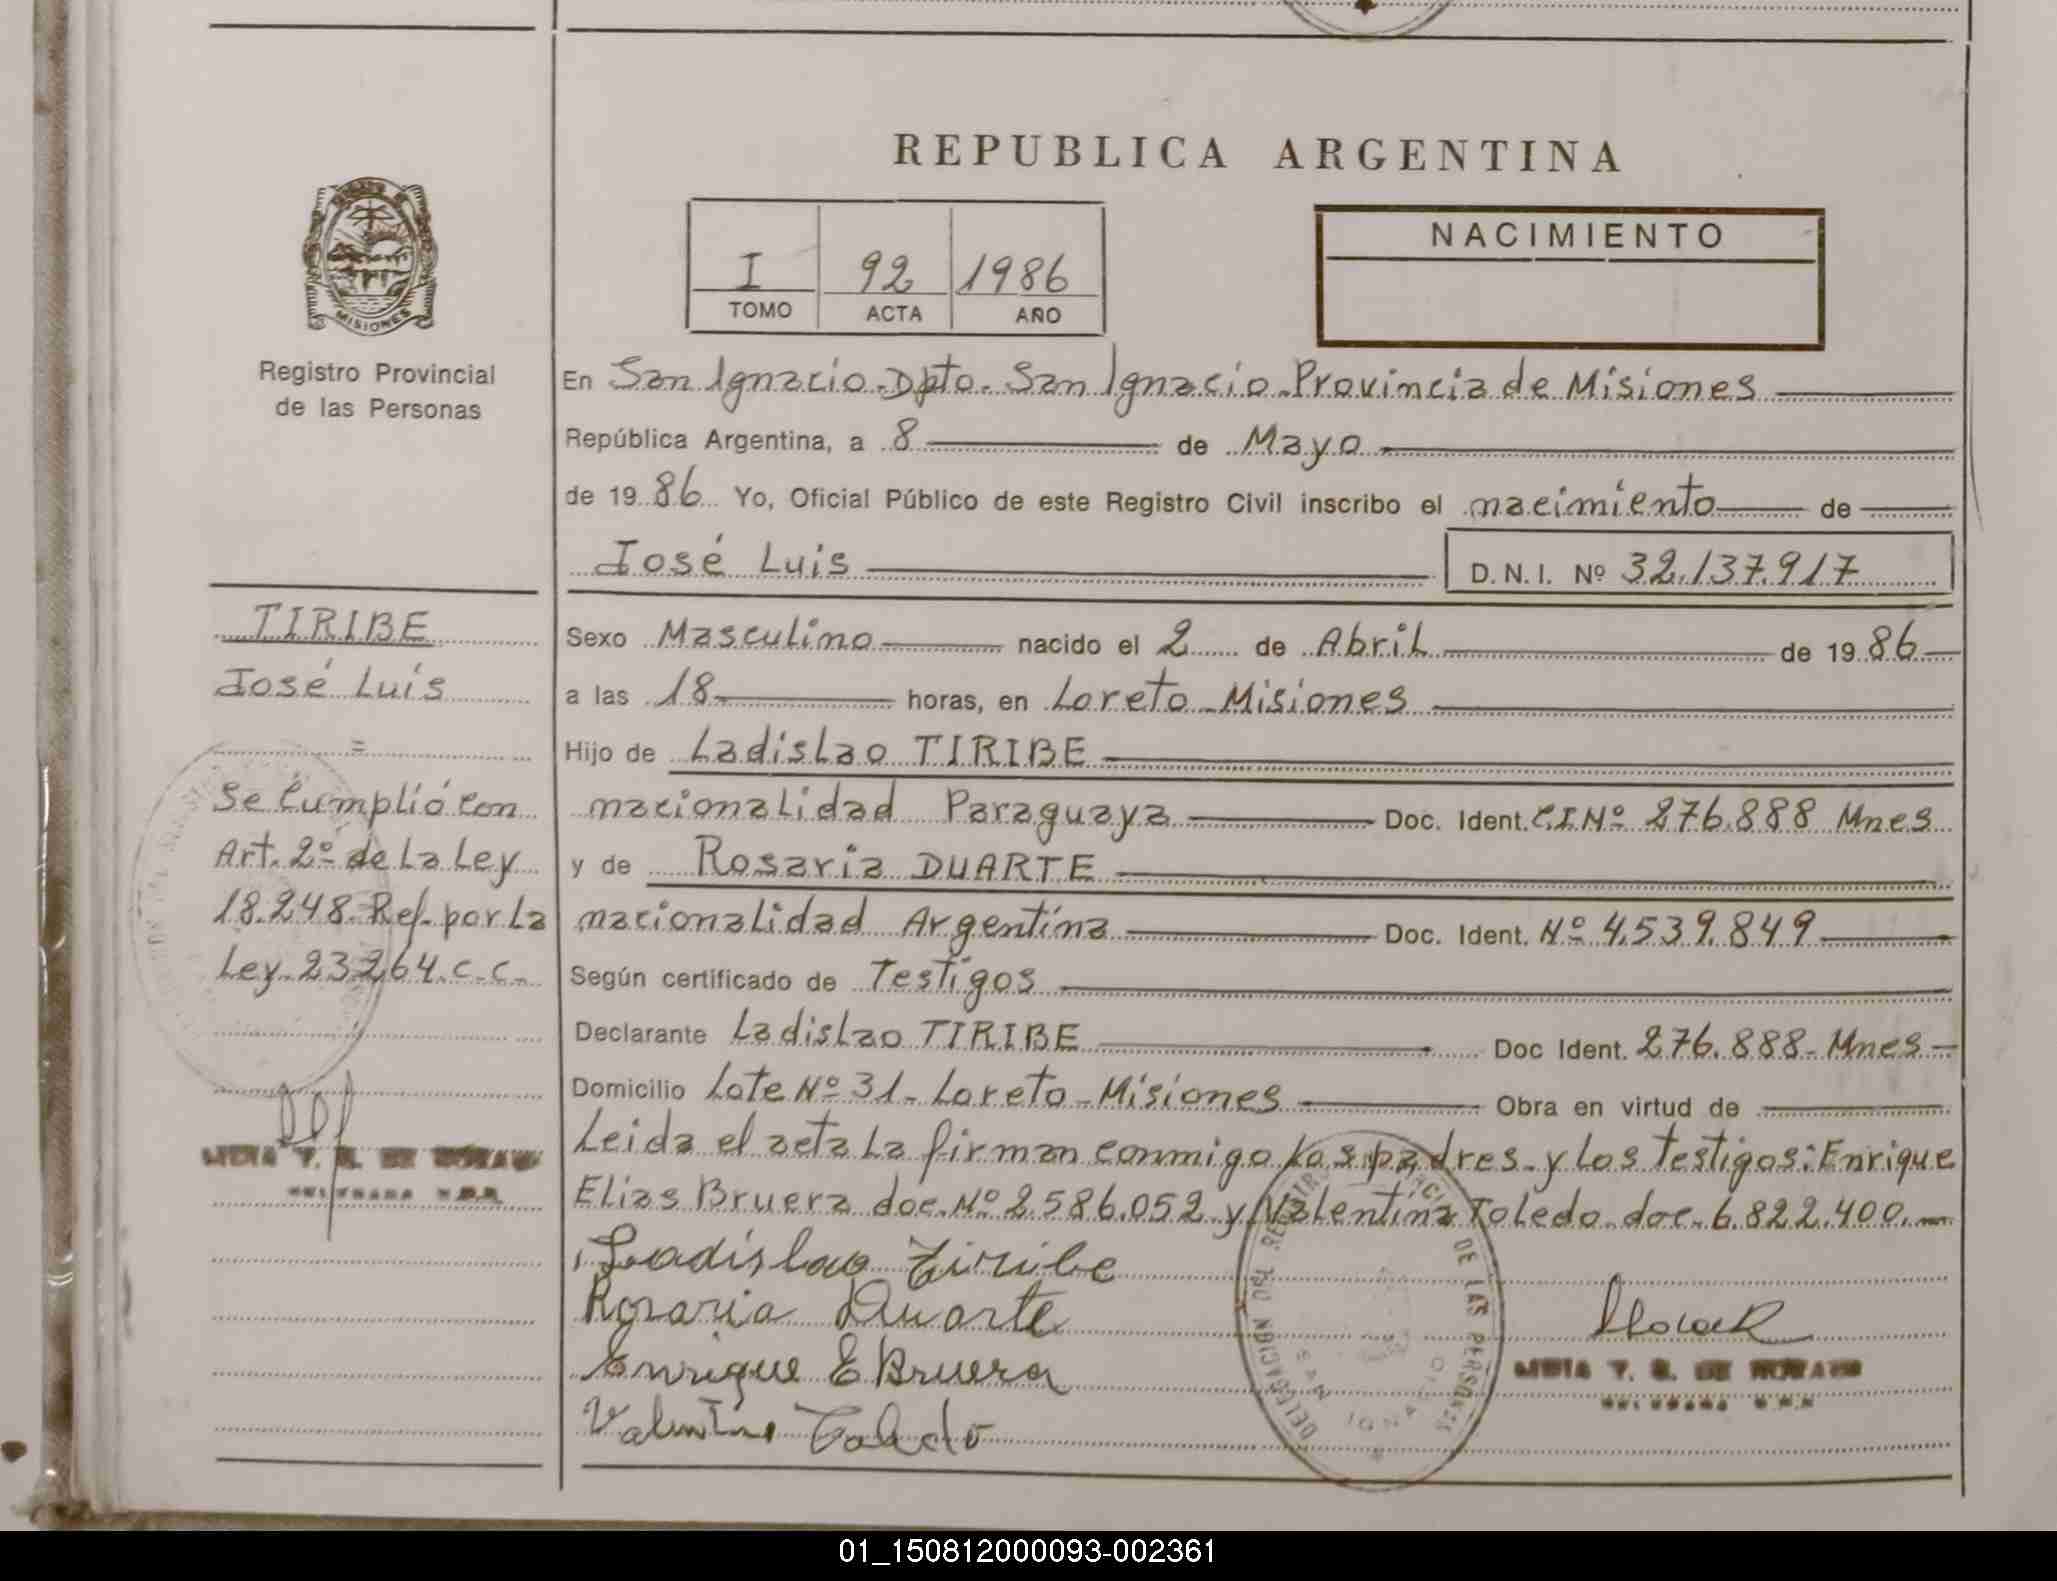 REPUBLICA ARGENTINA
MISIONES
Registro Provincial
de las Personas
I 92 1986
TOMO ACTA AÑO
NACIMIENTO
En San Ignacio-Dpto. San Ignacio-Provincia de Misiones
República Argentina, a 8 de Mayo
de 1986 Yo, Oficial Público de este Registro Civil inscribo el nacimiento de
José Luis D.N.I. Nº 32.137.917
TIRIBE
José Luis
=
Se Cumplió con
Art. 2º de La Ley
18.248-Ref. por La
Ley-23264.C.C.
Sexo Masculino nacido el 2 de Abril de 1986
a las 18 horas, en Loreto-Misiones
Hijo de Ladislao TIRIBE
nacionalidad Paraguaya Doc. Ident. C.I Nº 276.888 Mnes
y de Rosaria DUARTE
nacionalidad Argentina Doc. Ident. Nº 4.539.849
Según certificado de Testigos
Declarante Ladislao TIRIBE Doc Ident. 276.888-Mnes-
Domicilio Lote Nº 31-Loreto-Misiones Obra en virtud de
Leida el acta La firman conmigo Los padres-y Los Testigos: Enrique
Elias Bruera doc. Nº 2.586.052 y Valentina Toledo-doc-6.822.400.-
Ladislao Tiribe
Rosaria Duarte
Enrique E Bruera
Toledo
DELEGACION DEL DE LAS PERSONAS
SAN IGNACIO
01_150812000093-002361